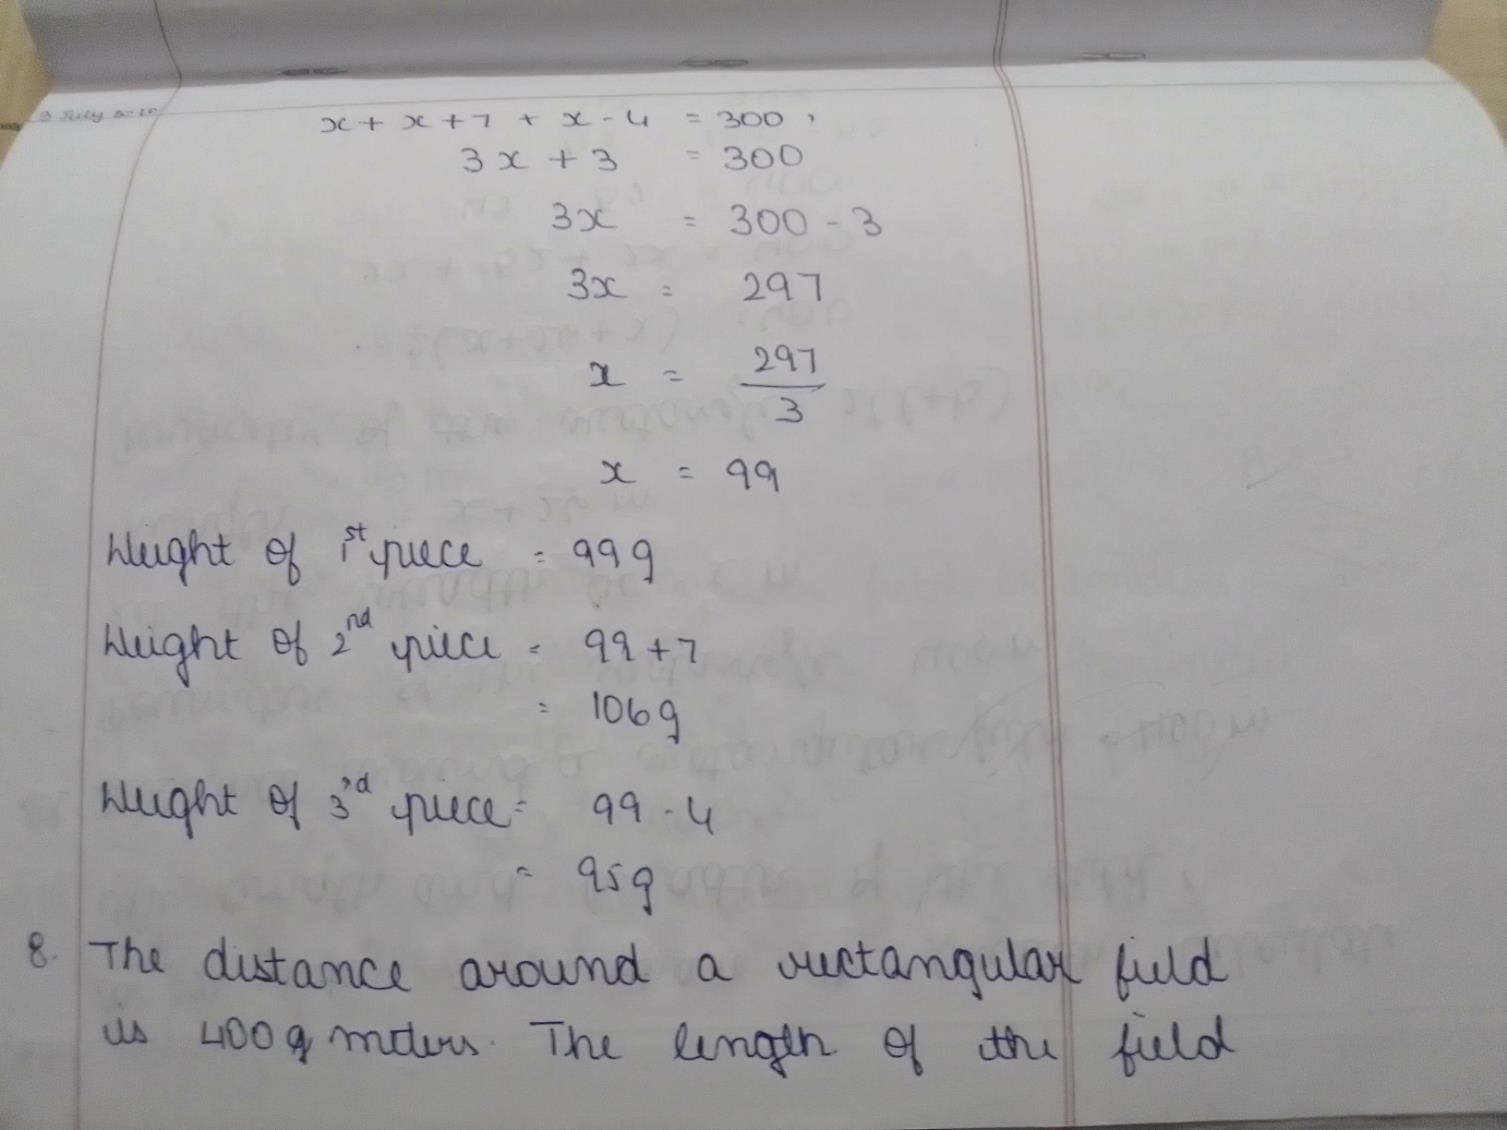 3 July 2020
x + x + 7 + x - 4 = 300
3x + 3 = 300
3x = 300 - 3
3x = 297
x = 297/3
x = 99
Weight of 1st piece = 99g
Weight of 2nd piece = 99 + 7
= 106g
Weight of 3rd piece = 99 - 4
= 95g
8. The distance around a rectangular field
is 400 meters. The length of the field